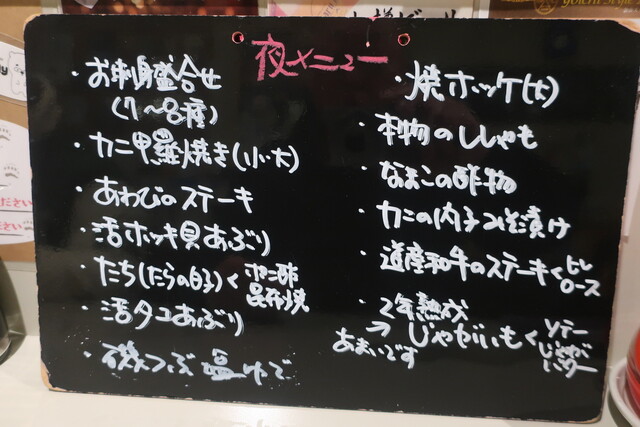 夜メニュー
・お刺身盛合せ
(7〜8種)
・カニ甲羅焼き(小・大)
・あわびのステーキ
・活ホッキ貝あぶり
・たち(たらの白子)く ポン酢
昆布焼
・活タコあぶり
・磯つぶ塩ゆで
・焼ホッケ(大)
・本物のししゃも
・なまこの酢物
・カニの内子みそ漬け
・道産和牛のステーキく ヒレ
ロース
・2年熟成
→じゃがいもく ソテー
じゃがバター
あまいです
ださい
ださい